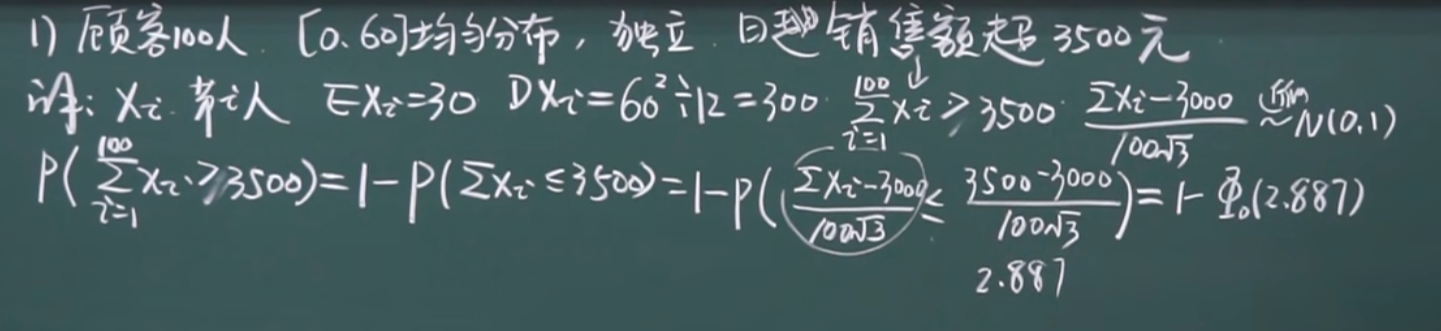 1) 顾客100人. [0.60]均匀分布, 独立. 日销售额超3500元
译: Xi 第i人 EXi=30 DXi=60²÷12=300 ∑_{i=1}^{100} Xi ≥ 3500 (∑Xi-3000)/(100√3) 近似~ N(0,1)
P(∑_{i=1}^{100} Xi ≥ 3500)=1-P(∑Xi ≤ 3500)=1-P((∑Xi-3000)/(100√3) ≤ (3500-3000)/(100√3))=1-Φ₀(2.887)
2.887